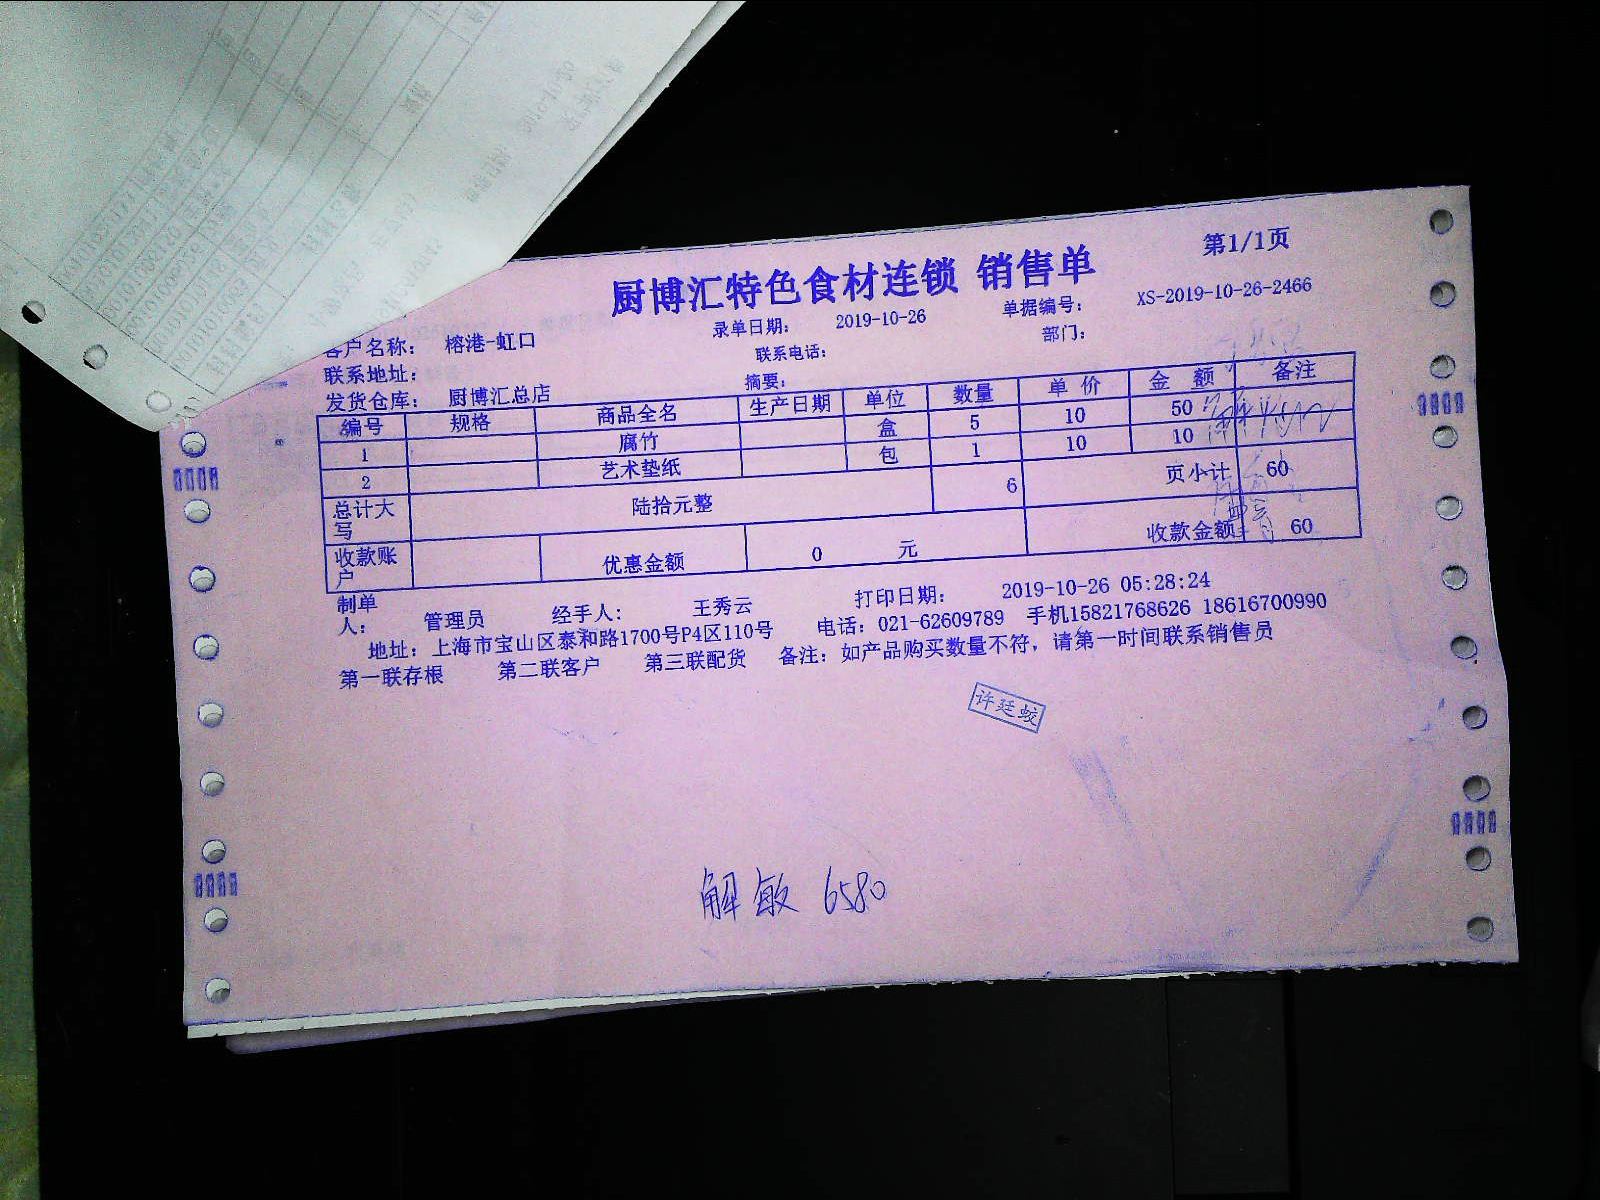 厨博汇特色食材连锁 销售单 第1/1页
客户名称: 榕港-虹口 录单日期: 2019-10-26 单据编号: XS-2019-10-26-2466
联系地址: 联系电话: 部门:
发货仓库: 厨博汇总店 摘要:
编号 规格 商品全名 生产日期 单位 数量 单价 金额 备注
1 腐竹 盒 5 10 50
2 艺术垫纸 包 1 10 10
总计大写 陆拾元整 6 页小计 60
收款账户 优惠金额 0 元 收款金额 60
制单人: 管理员 经手人: 王秀云 打印日期: 2019-10-26 05:28:24
地址: 上海市宝山区泰和路1700号P4区110号 电话: 021-62609789 手机15821768626 18616700990
第一联存根 第二联客户 第三联配货 备注: 如产品购买数量不符, 请第一时间联系销售员
许廷蛟
解敏 6580